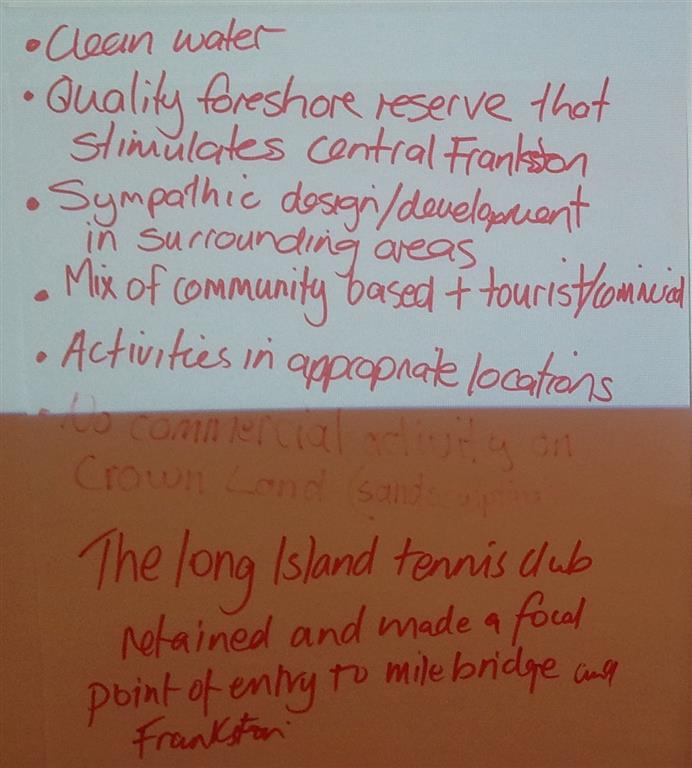 • Clean water
• Quality foreshore reserve that
stimulates central Frankston
• Sympathic design/development
in surrounding areas
• Mix of community based + tourist/
• Activities in appropriate locations
• No commercial activity on
Crown Land (sand
The long Island tennis club
retained and made a focal
point of entry to mile bridge and
Frankston